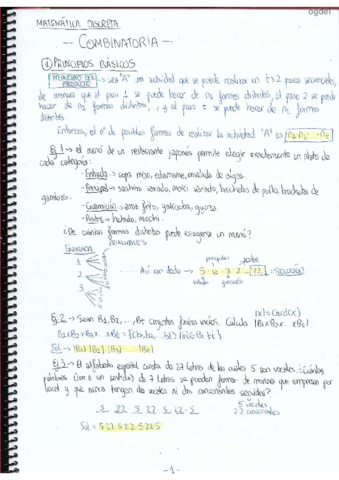 MATEMÁTICA DISCRETA
— COMBINATORIA —
① PRINCIPIOS BÁSICOS
PRINCIPIO DEL PRODUCTO → Sea "A" una actividad que se puede realizar en t≥2 pasos secuenciales,
de manera que el paso 1 se puede hacer de n₁ formas distintas, el paso 2 se puede
hacer de n₂ formas distintas, y el paso t se puede hacer de nt formas
distintas.
Entonces, el nº de posibles formas de realizar la actividad "A" es n₁·n₂· ··· nt
Ej 1 → el menú de un restaurante japonés permite elegir exactamente un plato de
cada categoría:
- Entrada → sopa miso, edamame, ensalada de algas.
- Principal → sashimi variado, maki variado, brochetas de pollo, brochetas de
gambones.
- Guarnición → arroz frito, yakisoba, gyoza.
- Postre → helado, mochi.
¿De cuántas formas distintas puede escogerse un menú?
ENTRADA
PRINCIPALES
1
2
3
Así con todo → = SOLUCIÓN
principales postre
entrada guarnición
|X| = Card(X)
Ej 2 → Sean B₁, B₂, ..., Bt conjuntos finitos vacíos. Calcula |B₁xB₂x...xBt|
B₁xB₂xB₃x...xBt = {(b₁, b₂, ... bt) | bi∈Bi ∀i}
Sol → |B₁|·|B₂|·|B₃|· ... |Bt|
Ej 3 → El alfabeto español consta de 27 letras de las cuales 5 son vocales. ¿Cuántas
palabras (con o sin sentido) de 7 letras se pueden formar de manera que empiecen por
vocal y que nunca tengan dos vocales ni dos consonantes seguidas?
5 22 5 22 5 22 5
5 vocales
22 consonantes
Sol = 5·22·5·22·5·22·5
-1-